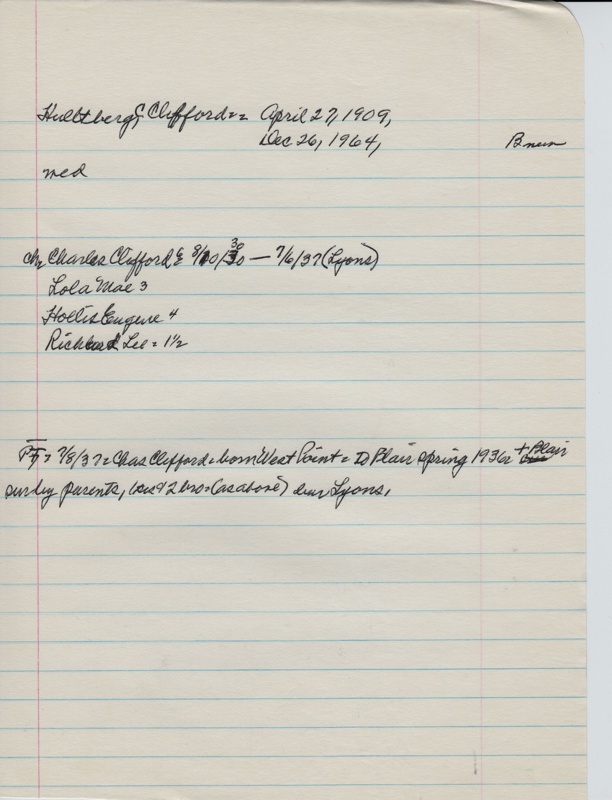 Hultberg, Clifford = April 27, 1909,
Dec 26, 1964, B neu
med
ch = Charles Clifford 8/10/30 — 7/6/37 (Lyons)
Lola Mae 3
Hollis Eugene 4
Richard Lee = 1½
PT = 7/8/37 = Chas Clifford = born West Point = To Blair spring 1936 + Blair
sur by parents, 2 bro = (as above) bur Lyons.